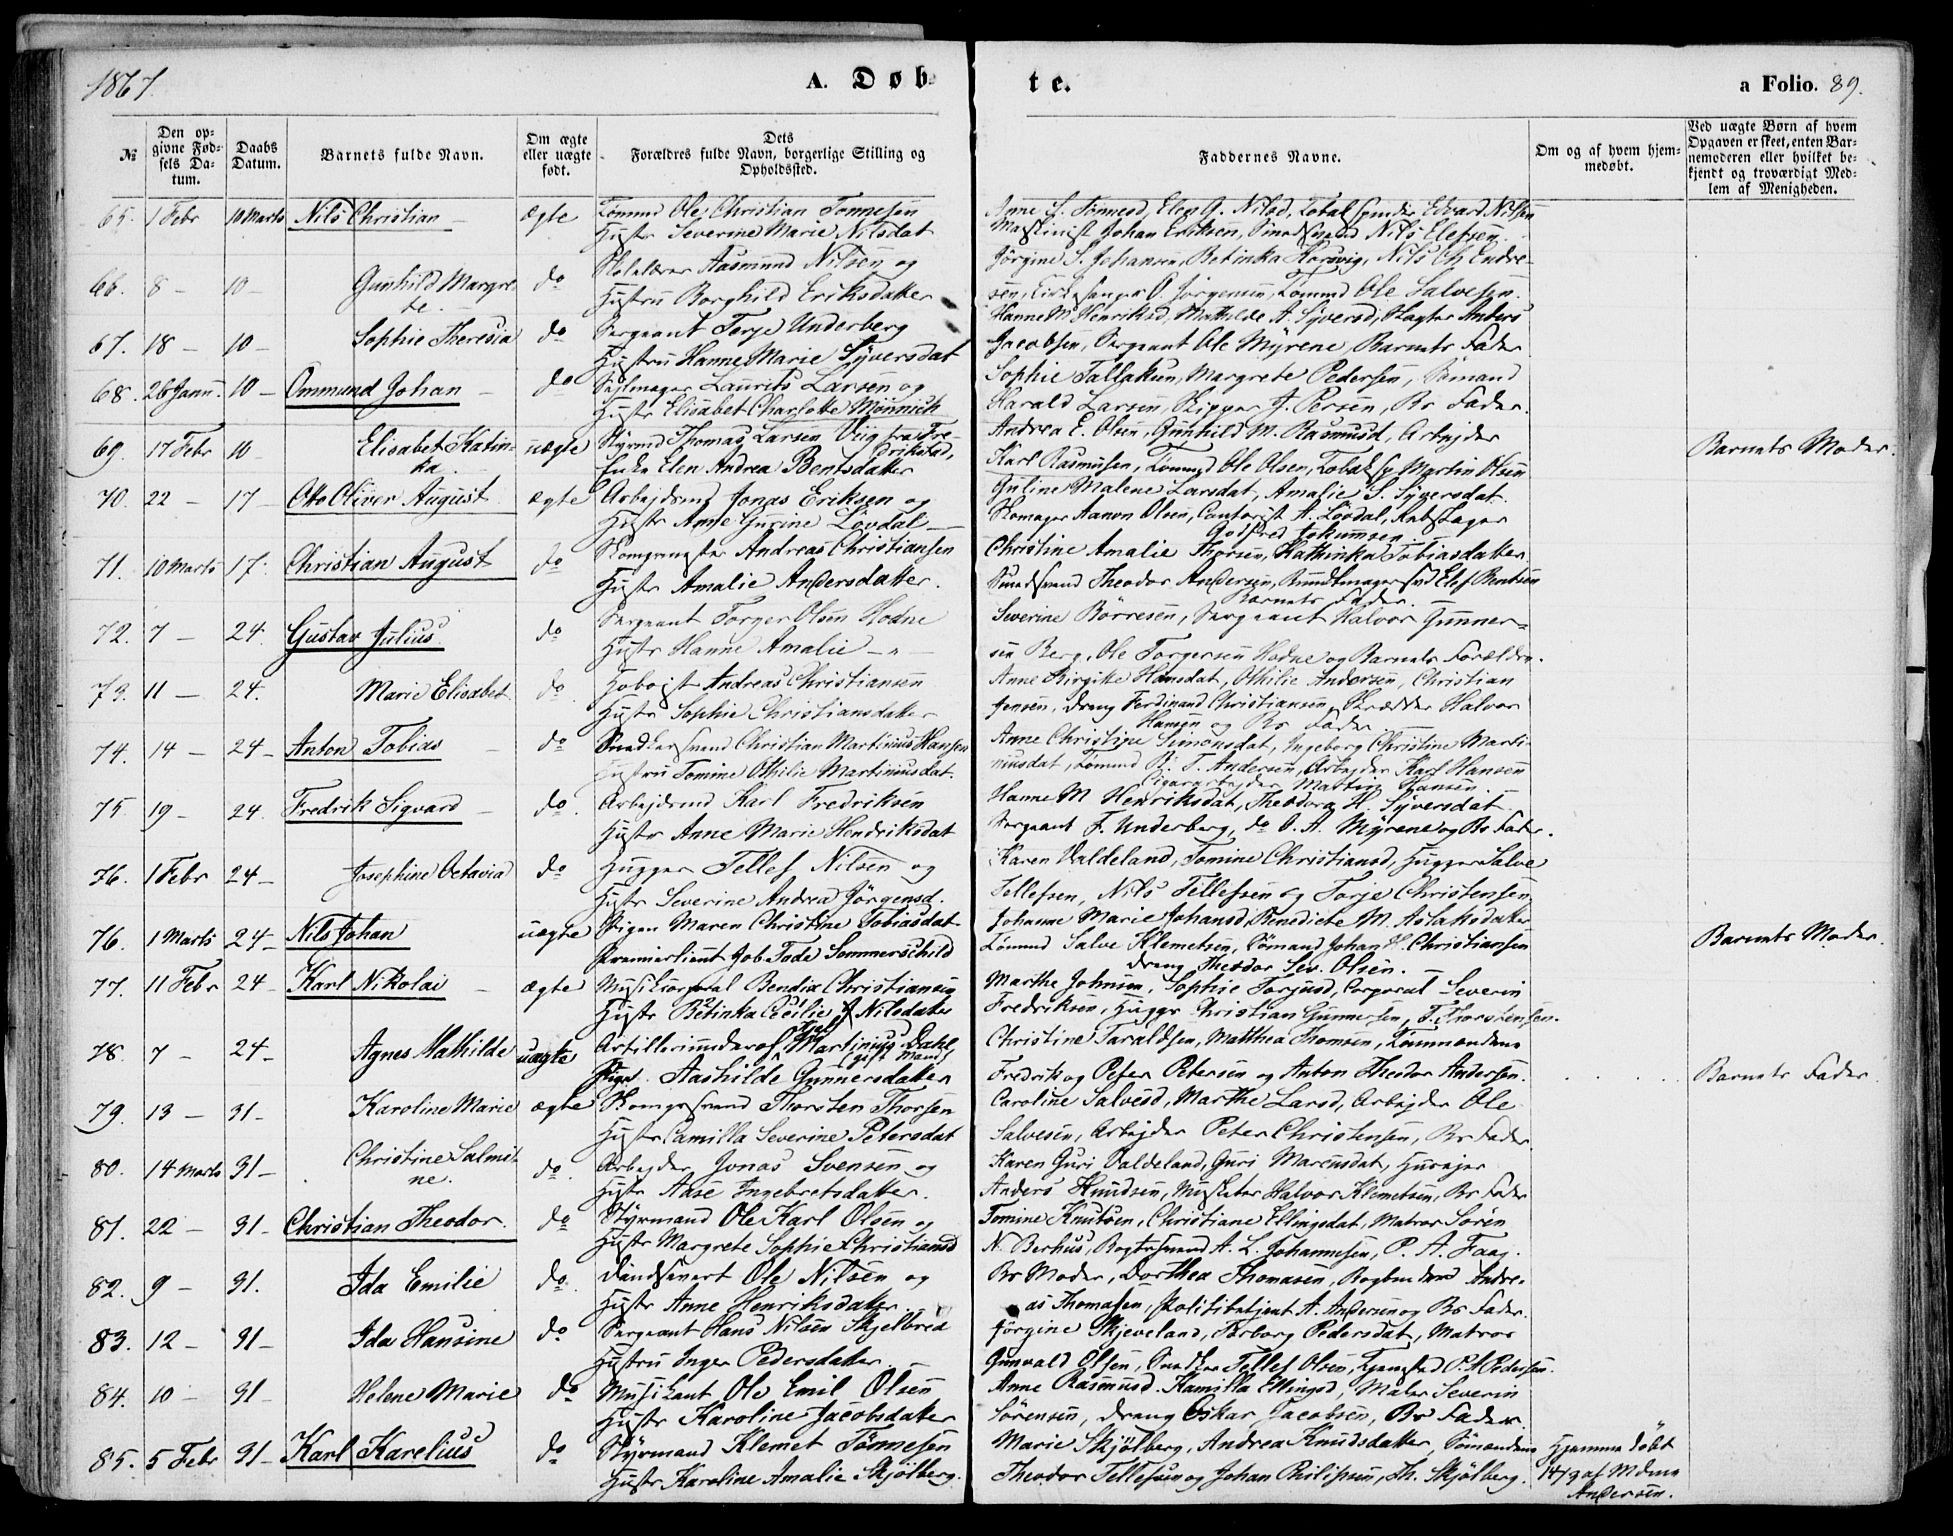 1867.
A. Døb
te.
a Folio. 89.
№
Den op-
givne Fød-
sels Da-
tum.
Daabs
Datum.
Barnets fulde Navn.
Om ægte
eller uægte
født.
Dets
Forældres fulde Navn, borgerlige Stilling og
Opholdssted.
Faddernes Navne.
Om og af hvem hjem-
medøbt.
Ved uægte Børn af hvem
Opgaven er skeet, enten Bar-
nemoderen eller hvilket be-
kjendt og troværdigt Med-
lem af Menigheden.
65. 1 Febr 10 Marts Nils Christian – ægte Tømmd Ole Christian Tønnesen
Hustr Severine Marie Nilsdat
Maskinist Johan Eriksen, Nils Elefsen.
66. 8 – 10 – Gunhild Margre- do Skolelærer Aasmund Nilsen og
te. Hustru Borghild Eriksdatter
Jørgensen, Tømmd Ole Salvesen.
67. 18 – 10 – Sophie Theresia do Sergeant Terje Underberg
Hustru Hanne Marie Syversdat
Hanne M Henriksd, Mathilde A. Syversd, Anders
Jacobsen, Sergeant Ole Myrene, Barnets Fader
68. 26 Janu. 10 – Ommund Johan – do Seglmager Laurits Larsen og
Hustr Elisabet Charlotte Mønnich
Sophie Tallaksen, Margrete Pedersen, Sømand
Harald Larsen, Skipper J. Persen, Br Fader.
69. 17 Febr 10 Elisabet Katin- uægte Styrmd Thomas Larsen Viig fra Fre-
ka. drikstad,
Enke Elen Andrea Bentsdatter
Andrea E. Olsen, Gunhild M. Rasmusd, Arbejder
Karl Rasmussen, Tømmd Ole Olsen, Martin Olsen
Barnets Moder.
70. 22 – 17 – Otto Oliver August ægte Arbejdsmd Jonas Eriksen og
Hustr Anne Gurine Løvdal –
Guline Malene Larsdat, Amalie S. Syversdat.
Skomager Aanon Olsen, Contorist A. Løvdal,
71. 10 Marts 17. Christian August do Andreas Christiansen
Hustr Amalie Andersdatter.
Christine Amalie Thorsen, Kathinka Tobiasdatter
Theodor Andersen, Elef Bentsen
Barnets Fader.
72. 7 – 24. Gustav Julius do Sergeant Torger Olsen Hodne
Hustr Hanne Amalie – „ –
Severine Børresen, Sergeant Halvor Gunner-
sen Berg, Ole Torgersen Hodne og Barnets Forældre.
73. 11 – 24. Marie Elisabet. do Hoboist Andreas Christiansen
Hustr Sophie Christiansdatter
Anne Birgitte Hansdat, Othilie Andersen, Christian
Jensen, Dreng Ferdinand Christiansen, Skrædder Halvor
Hansen og Br Fader
74. 14 – 24 – Anton Tobias – do Snedkersvend Christian Martinius Hansen
Hustru Tomine Othilie Martiniusdat.
Anne Christine Simonsdat, Ingeborg Christine Marti-
niusdat, Tømmd B. T. Andersen, Arbejder Karl Hansen
Cigararbejder Mathias Hansen.
75 19 – 24. Fredrik Sigvard – do. Arbejdsmd Karl Fredriksen
Hustr Anne Marie Hendriksdat
Hanne M Henriksdat, Theodora H. Syversdat
Sergeant T. Underberg, do O. A. Myrene og Br Fader.
76. 1 Febr 24 – Josephine Octavia do Hugger Tellef Nilsen og
Hustr Severine Andrea Jørgensd.
Karen Valdeland, Tomine Christiansd, Hugger Salve
Tellefsen, Nils Tellefsen og Terje Christensen
76. 1 Marts 24 – Nils Johan uægte Pigen Maren Christine Tobiasdat
Premierlieut Job Tode Sommerschild
Johanne Marie Johansd, Benedicte M. Aslaksdatter
Tømmd Salve Klemetsen, Sømand Johan Christiansen
Dreng Theodor Sev. Olsen.
Barnets Moder.
77. 11 Febr 24 – Karl Nikolai – ægte Musikcorporal Bendix Christiansen
Hustr Betinka Cecilie J Nilsdatter
Marthe Johnsen, Sophie Torjusd, Corporal Severin
Fredriksen, Hugger Christian Gunnersen, T. Thorstensen.
78. 7 – 24 – Agnes Mathilde uægte Artilleriunderof. Martinius Dahl
(gift Mand)
Pige Aashilde Gunnersdatter
Christine Taraldsen, Matthea Thomsen, Tømmændene
Fredrik og Peter Petersen og Anton Theodor Andersen.
Barnets Fader.
79. 13 – 31 – Karoline Marie ægte Skomgrsvend Thorsten Thorsen
Hustr Camilla Severine Petersdat
Caroline Salvesd, Marthe Larsd, Arbejder Ole
Salvesen, Arbejder Peter Christensen, Br Fader
80. 14 Marts 31 – Christine Salmi-
ne. do. Arbejder Jonas Svensen og
Hustr Aase Ingebretsdatter.
Karen Guri Valdeland, Guri Marcusdat, Huseier
Anders Knudsen, Musketer Halvor Klemetsen, Br Fader
81. 22 – 31 – Christian Theodor. do Styrmand Ole Karl Olsen og
Hustr Margrete Sophie Christiansd
Tomine Knutsen, Christiane Ellingsdat, Matros Søren
N. Berhus, A. L. Johannesen, P. A. Faag.
82. 9 – 31. Ida Emilie do. Ole Nilsen og
Hustr Anne Henriksdatter.
Br Moder, Dorthea Thomasen, Andre-
as Thomasen, Politibetjent A. Andersen og Br Fader.
83. 12 – 31 – Ida Hansine do Sergeant Hans Nilsen Skjelbred
Hustru Inger Pedersdatter –
Jørgine Skjeveland, Torborg Pedersdat, Matros
Gunvald Olsen, Snedker Tellef Olsen, P. A Pedersen.
84. 10 – 31 – Helene Marie do Musikant Ole Emil Olsen
Hustr Karoline Jacobsdatter
Anne Rasmusd. Kamilla Ellingsd, Maler Severin
Sørensen, Dreng Oskar Jacobsen, Br Fader.
85. 5 Febr 31 – Karl Karelius do Styrmand Klemet Tønnesen
Hustr Karoline Amalie Skjølberg.
Marie Skjølberg, Andrea Knudsdatter, Sømændene
Theodor Tellefsen og Johan Philipsen, Th. Skjølberg.
Hjemme døbt
14/3 af
Andersen.